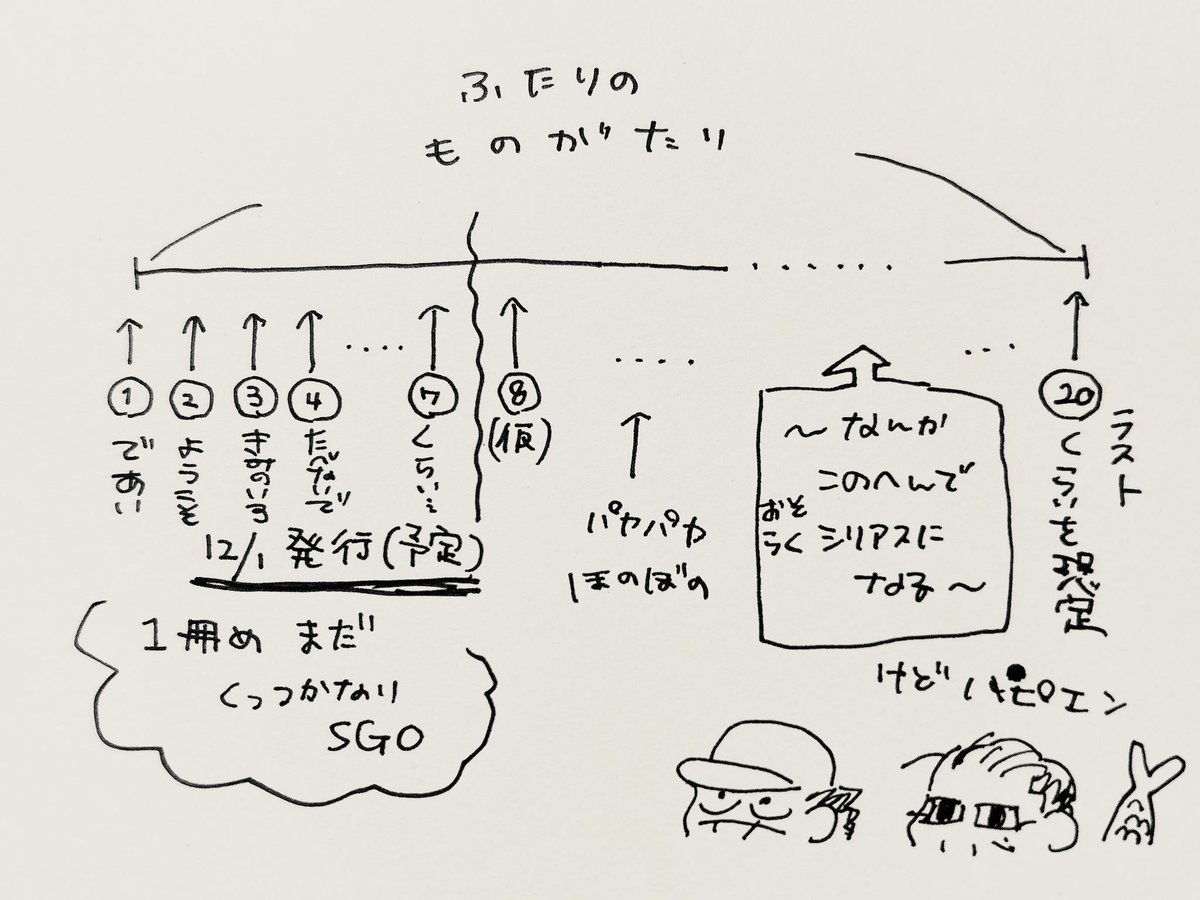 ふたりの
ものがたり
①
であい
②
ようこそ
③
きみのいろ
④
たべないで
‥‥
⑦
くらい…
⑧
(仮)
‥‥‥
12/1 発行(予定)
1冊め まだ
くっつかない
SGO
パヤパヤ
ほのぼの
～なんか
このへんで
おそらく シリアスに
なる～
けど ハピエン
⑳
くらいを想定
ラスト